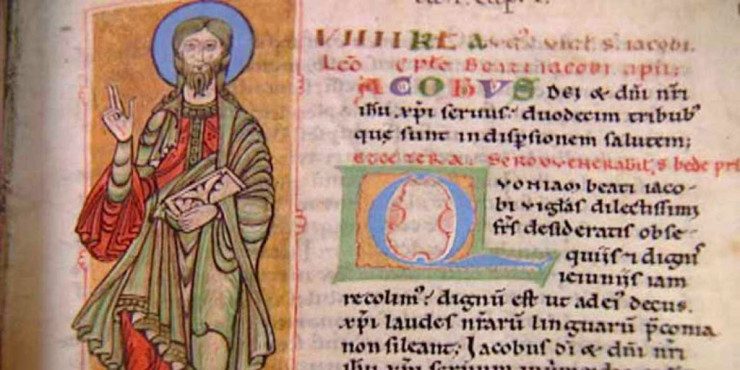 VIIII KL A vigł s. iacobi.
Lec epłe beati iacobi apłi
IACOBVS dei & dñi nr̃i
ihu xp̃i seruus: duodecim tribub;
que sunt in dispsionem salutem;
& CETERA SERMO VENERABILIS bede prƀ
QVONIAM beati iaco-
bi vigl̃as dilectissimi
fr̃s desideratis obse-
quiis & dignis
ieiuniis iam
recolim': dignū est ut ad ei' decus.
xp̃i laudes nr̃arū linguarū p̃conia
non sileant; Jacobus di & dñi nr̃i
ihu xp̃i seruus